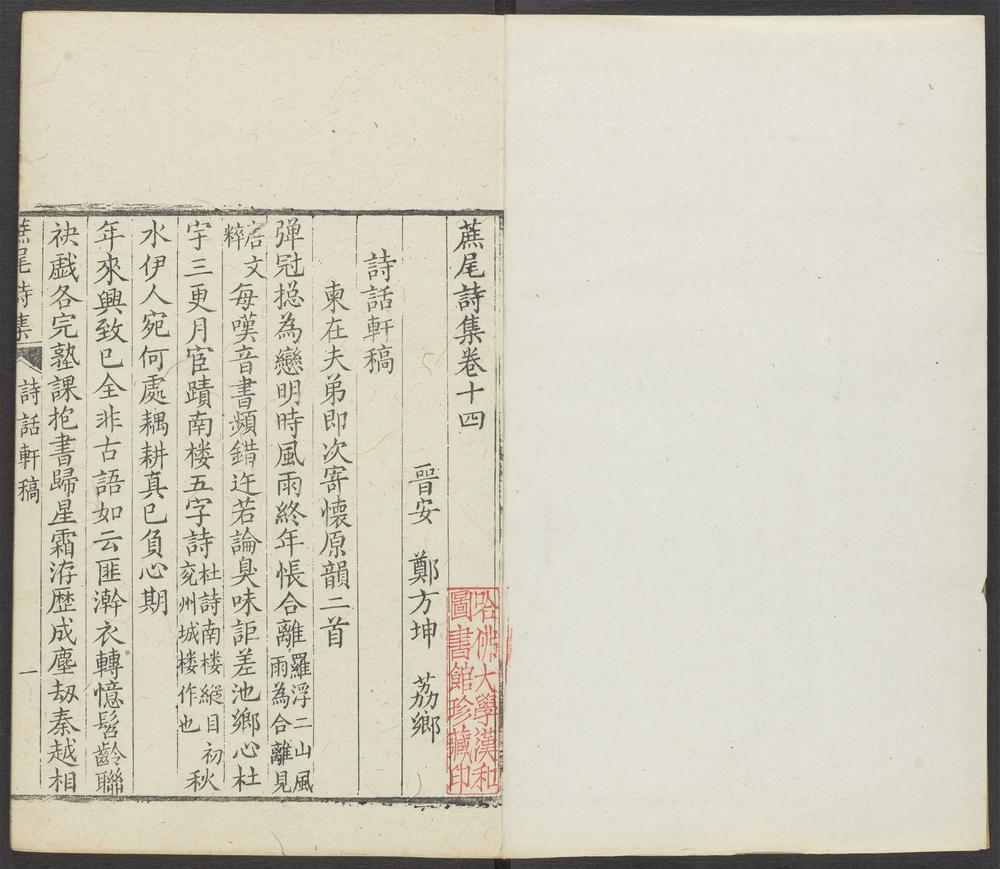 蔗尾詩集卷十四
晉安 鄭方坤 荔鄉
詩話軒稿
柬在夫弟即次寄懷原韻二首
彈冠揔為戀明時風雨終年悵合離羅浮二山風雨為合離見
唐文粹每嘆音書頻錯迕若論臭味詎差池鄉心杜
宇三更月宦蹟南楼五字詩杜詩南楼縱目初兖州城楼作也秋
水伊人宛何處耦耕真已負心期
年來興致已全非古語如云匪澣衣轉憶髫齡聯
袂戲各完塾課抱書歸星霜洊歷成塵刼秦越相
蔗尾詩集 詩話軒稿 一
哈佛大學漢和
圖書館珍藏印